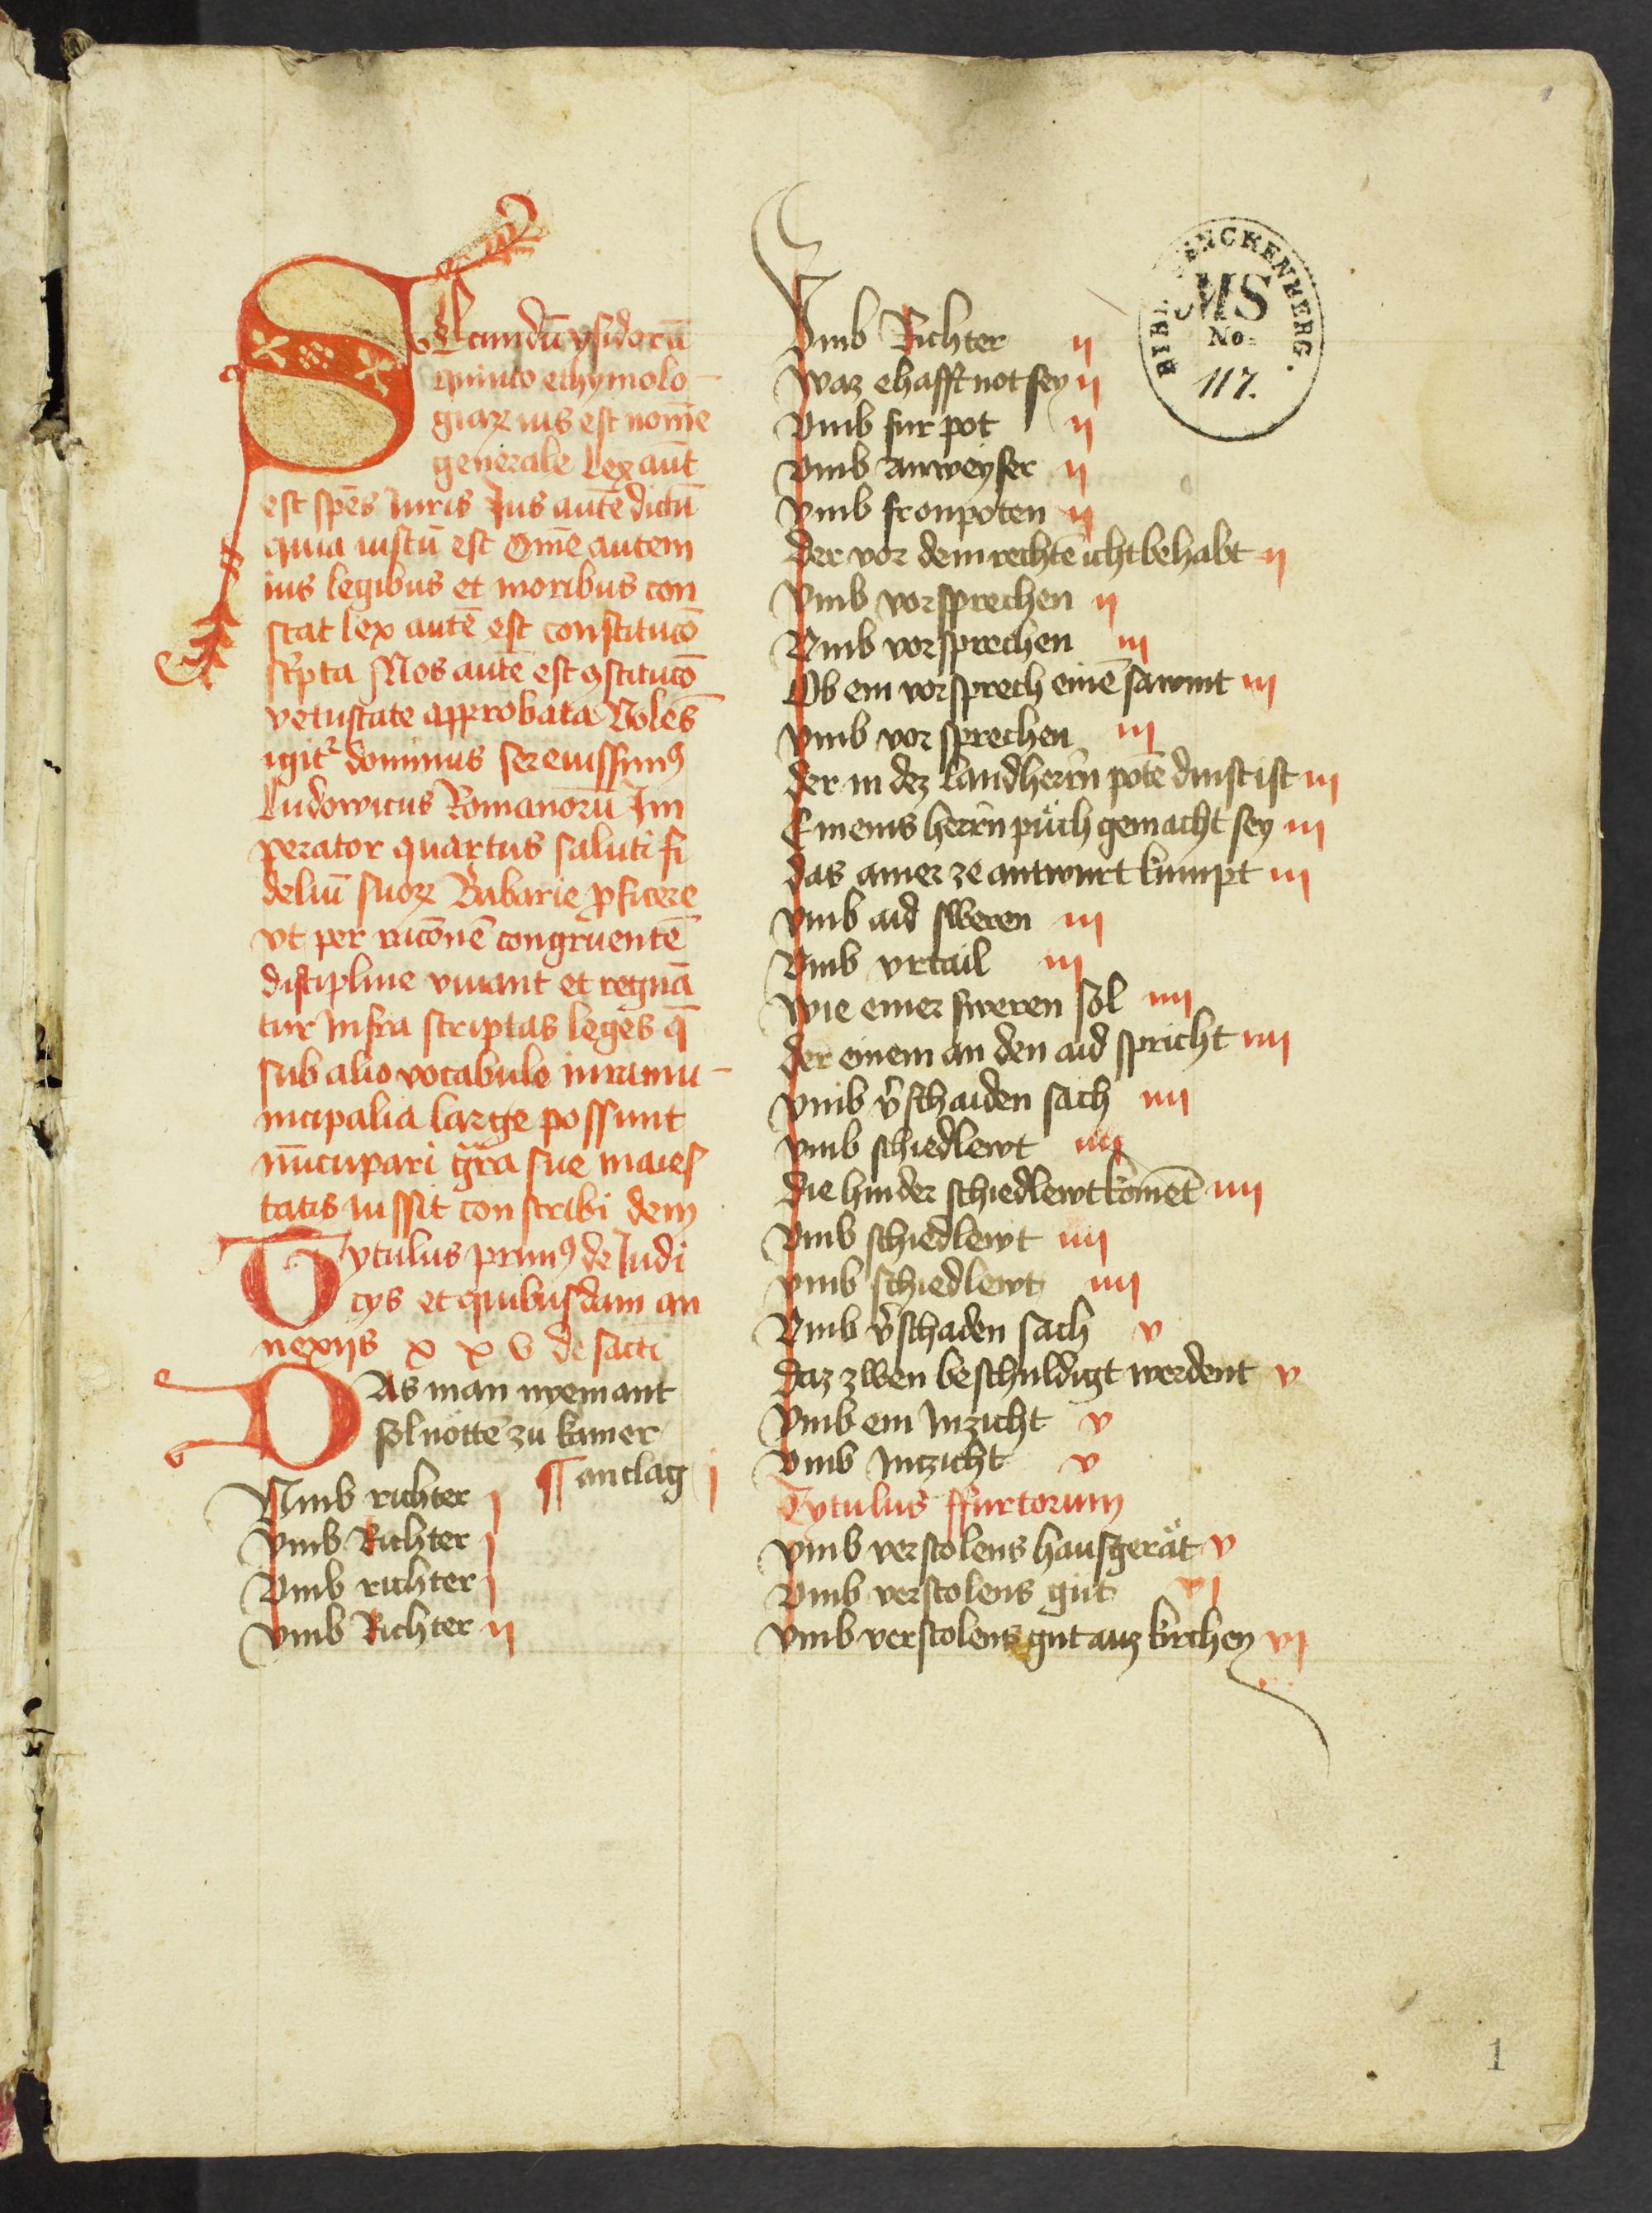 SEcundū ysidorū
quinto ethymolo-
giaꝝ ius est nomē
generale Lex aūt
est spēs Iuris Jus autē dictū
quia iustū est Om̄e autem
ius legibus et moribus con
stat lex autē est constitucō
scͥpta Mos autē est ꝯstitucō
vetustate approbata Volēs
igitᷣ dominus serenissimꝰ
Ludowicus Romanorū Im
perator quartus saluti fi
deliū suoꝝ Babarie ꝓficere
vt per racōnē congruentē
discipline viuant et regnā
tur Infra scriptas leges q̄
sub alio vocabulo iura mu-
nicipalia large possunt
nūcupari gr̄a sue maies
tatis iussit conscribi dem
Tytulus primꝰ de Iudi
cys et quibusdam an
nexijs x x v de sacti
DAs man nyemant
sol nöttē zu kamer
¶ anclag j
Vmb richter j
Vmb Richter j
Vmb richter j
Vmb Richter ij
Vmb Richter ij
Waz ehafft not sey ij
Vmb fur pot ij
Vmb anweyser ij
Vmb fronpoten ij
Der vor dem rechtē icht behabt ij
Vmb vorsprechen ij
Vmb vorsprechen iij
Ob ein vorsprech einē sawmt iij
Vmb vorsprechen iij
Der in dez landherrn potē dinst ist iij
Einems herrn püch gemacht sey iij
Das ainer ze antwurt kumpt iij
Vmb aid sweren iij
Vmb vrtail iij
Wie einer sweren sol iiij
Der einem an den aid spricht iiij
Vmb v̄schaiden sach iiij
Vmb schiedlewt iiij
Die hinder schiedlewt komēt iiij
Vmb schiedlewt iiij
Vmb schiedlewt iiij
Vmb v̄schaden sach v
Daz zwen beschuldigt werdent v
Vmb ein Inzicht v
Vmb Intzicht v
Tytulus ffurtorum
Vmb verstolens hausgerät v
Vmb verstolens gut vj
Vmb verstolens gut auz kirchen vj
BIBL. SENCKENBERG.
MS
No.
117.
1